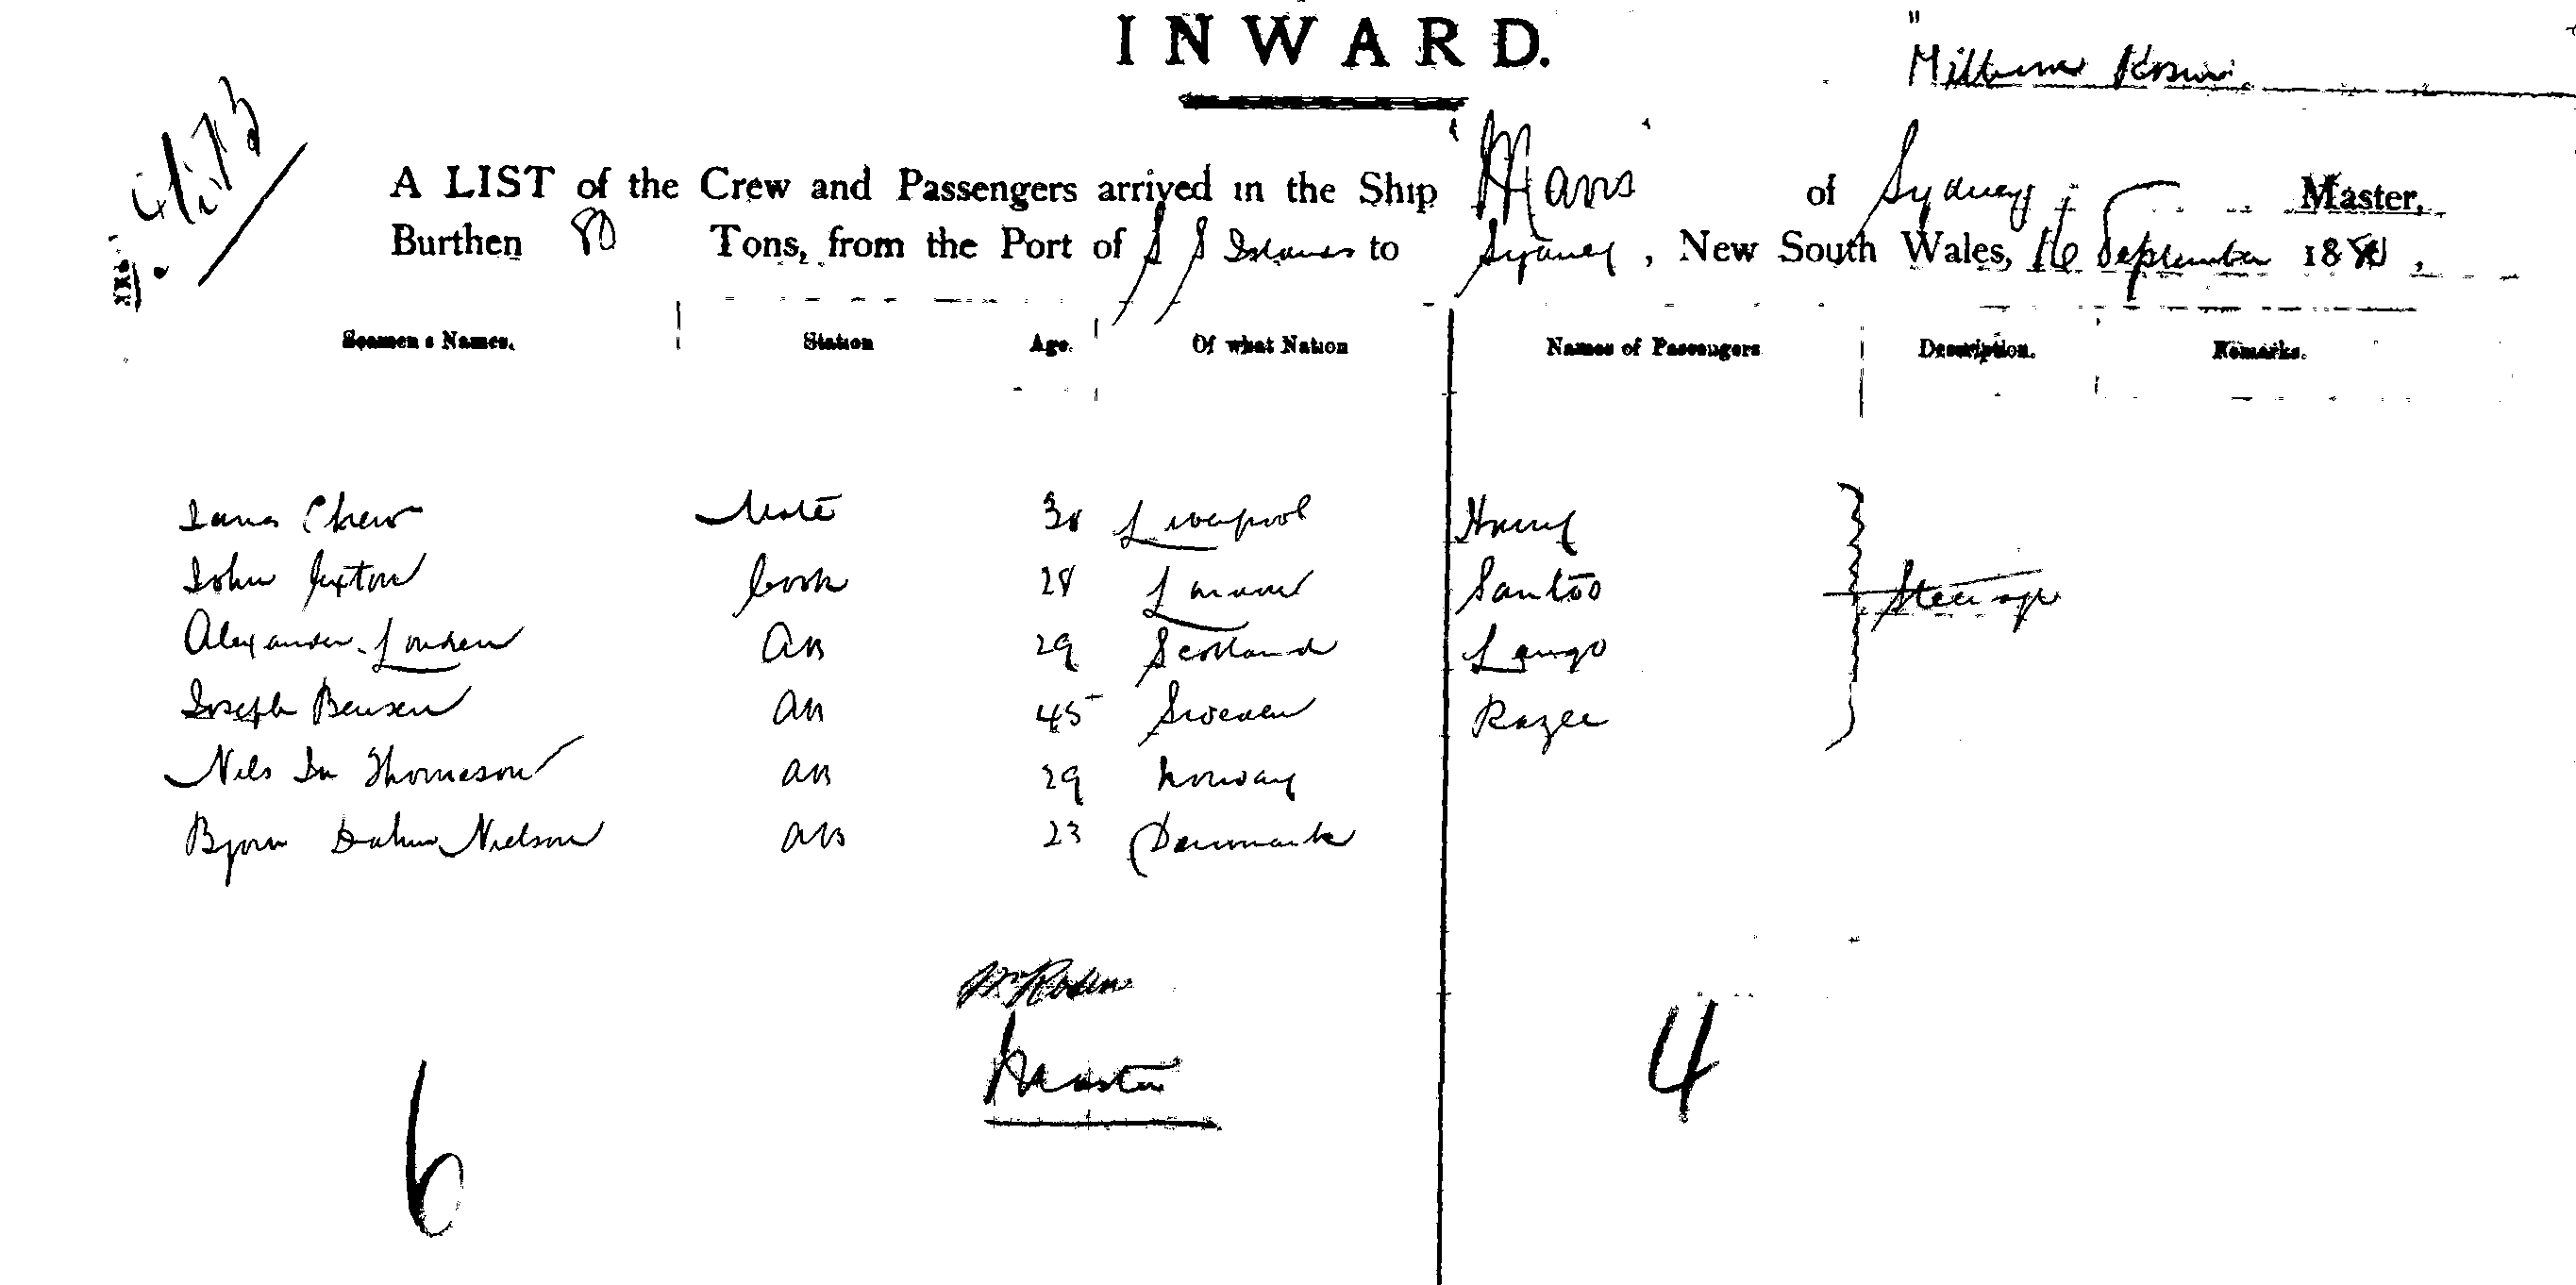 INWARD.
A LIST of the Crew and Passengers arrived in the Ship of Sydney Master,
Burthen 80 Tons, from the Port of S S Islands to Sydney, New South Wales, 16 September 18
Seamen s Names. Station Age. Of what Nation Names of Passengers Description. Remarks.
James Chew Mate Liverpool Harry
John Cook 28 Santoo Steerage
Alexander Louden AB 29 Scotland Lango
Joseph Bensen AB 45 Sweden Razee
Nils Jn Thomeson AB 29 Norway
Bjorn Dahm Nielson AB 23 Denmark
Master
6 4